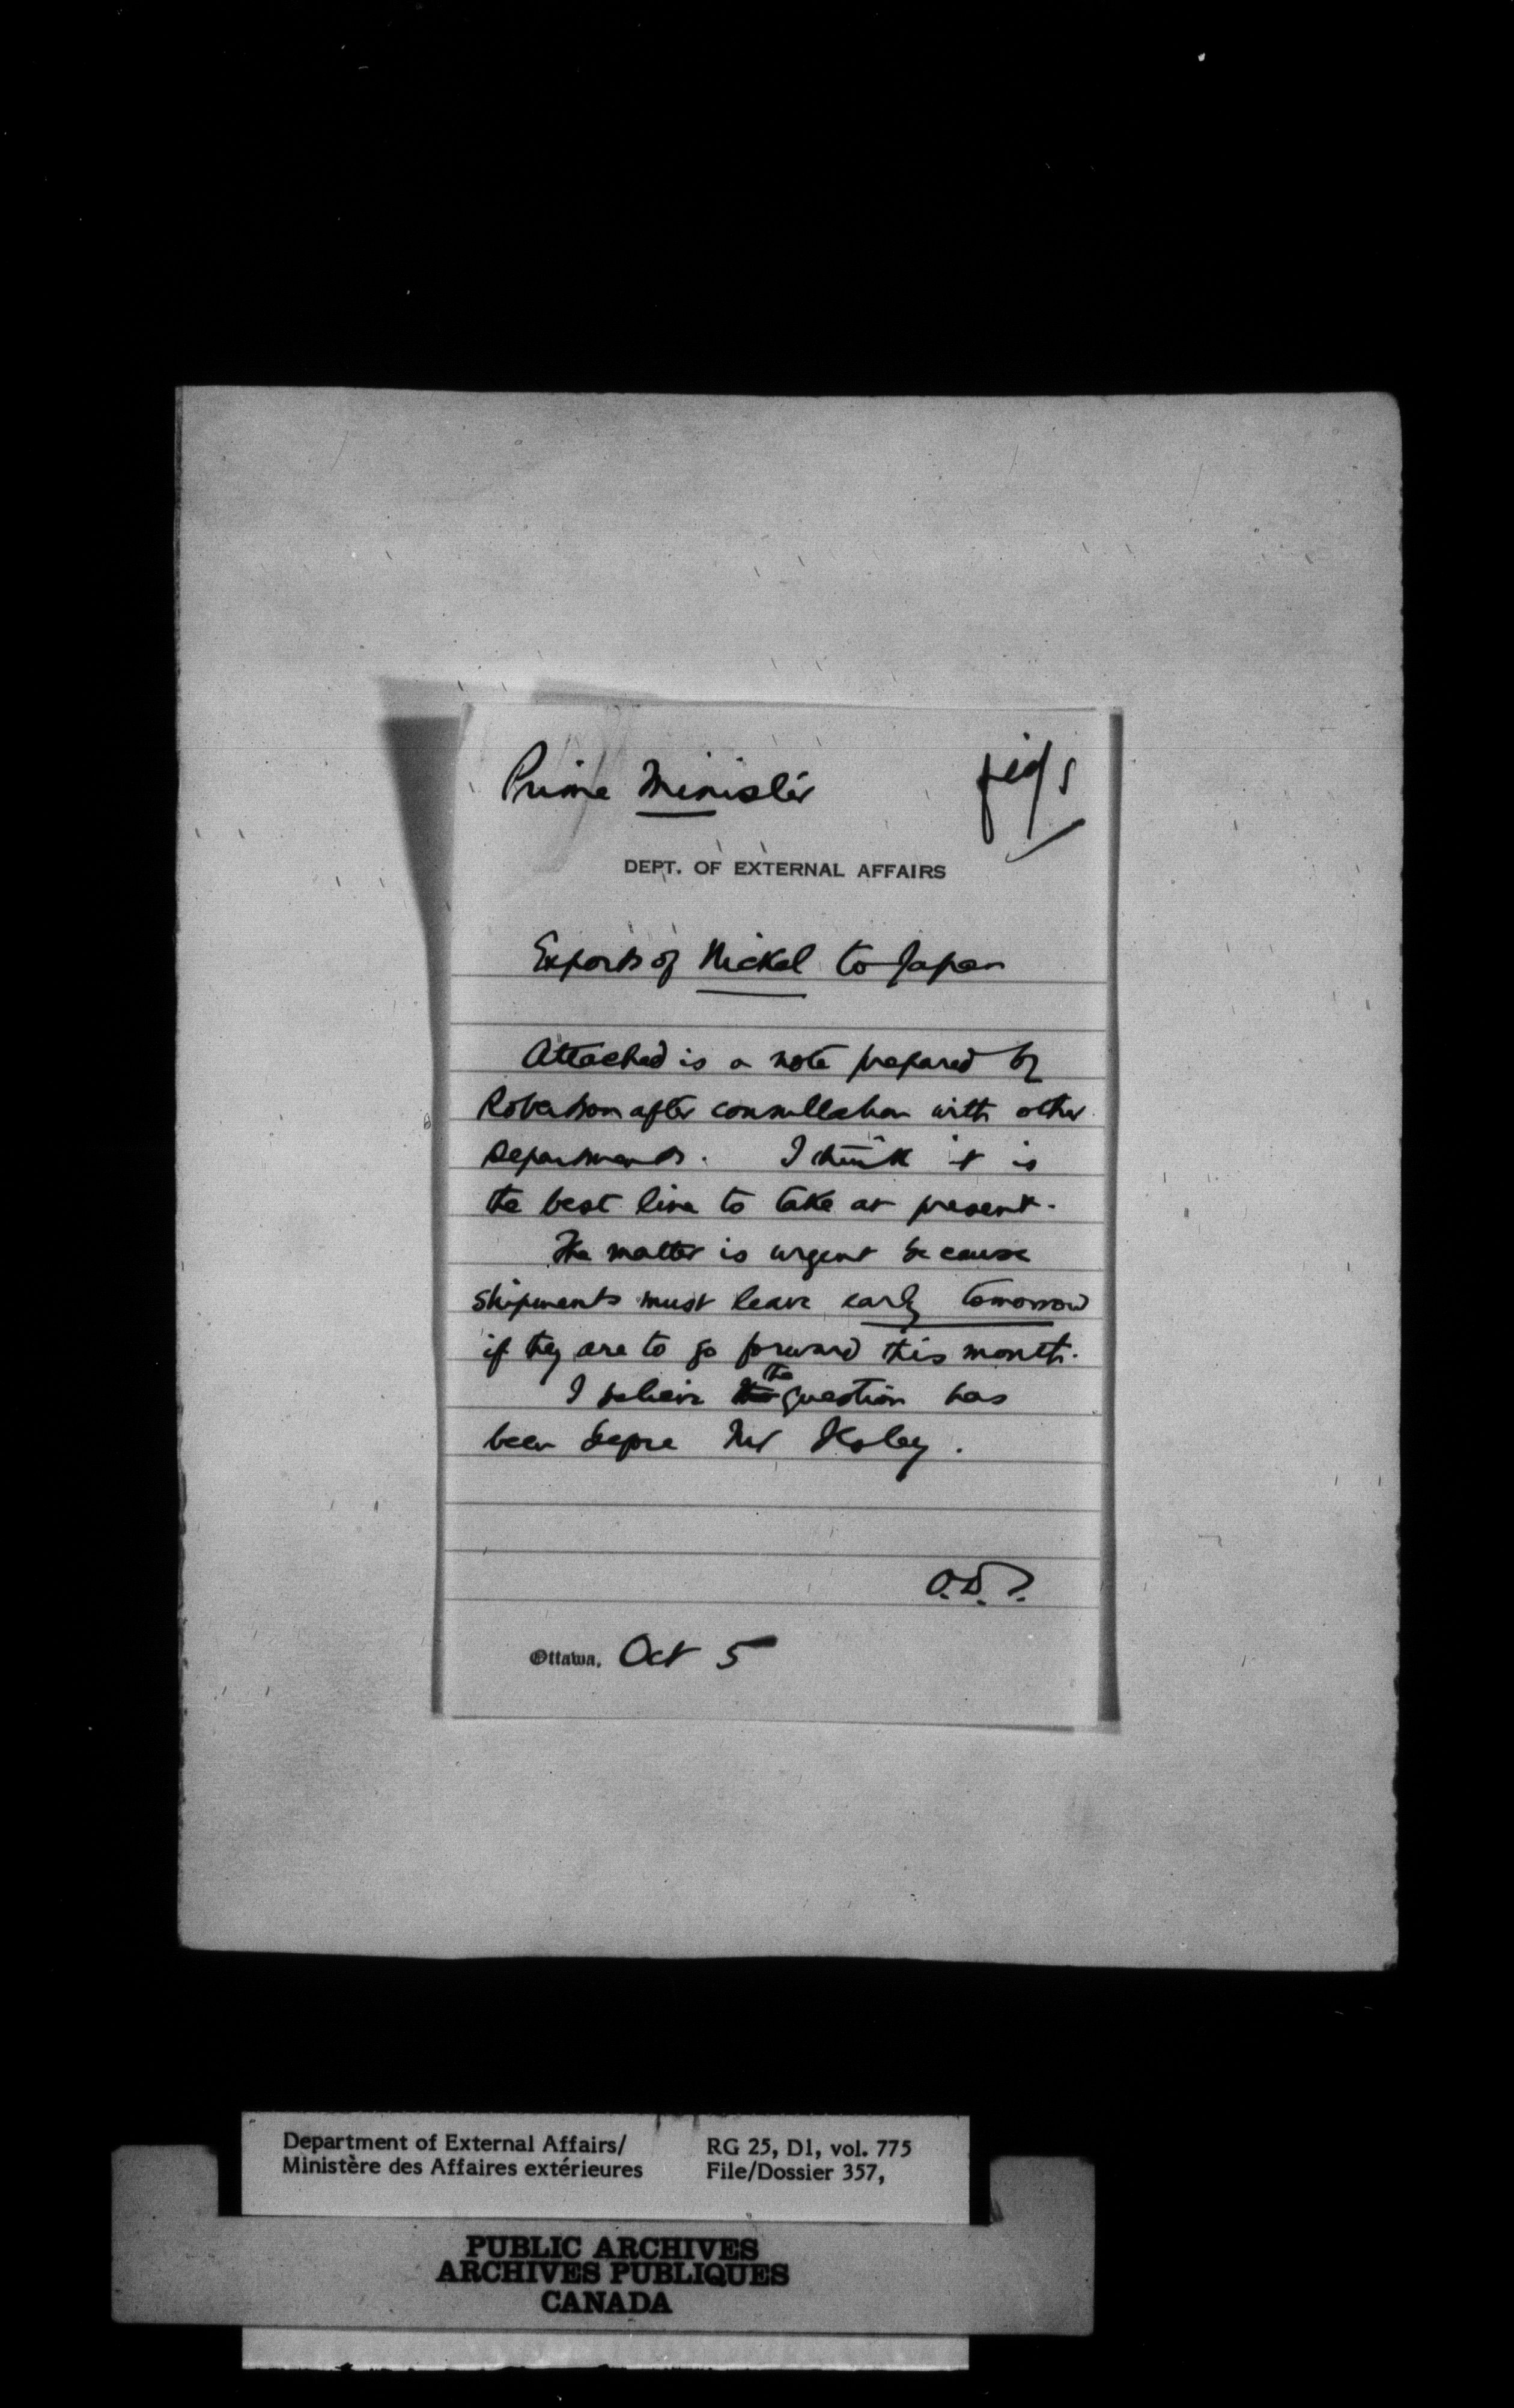 Prime Minister
DEPT. OF EXTERNAL AFFAIRS
Exports of Nickel to Japan
Attached is a note prepared by
Robertson after consultation with other
Departments. I think it is
the best line to take at present.
The matter is urgent because
shipments must leave early tomorrow
if they are to go forward this month.
I believe the question has
been before Mr Ilsley.
O.D.S.
Ottawa, Oct 5
Department of External Affairs/ RG 25, D1, vol. 775
Ministère des Affaires extérieures File/Dossier 357,
PUBLIC ARCHIVES
ARCHIVES PUBLIQUES
CANADA